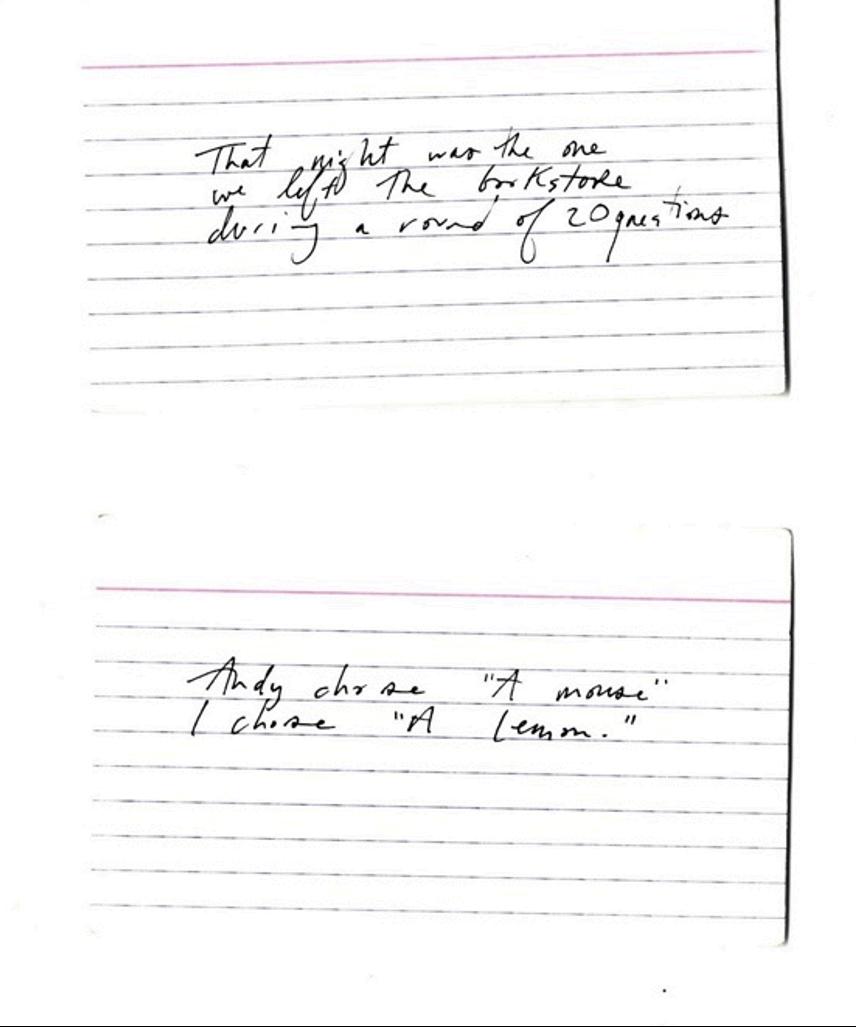 That night was the one
we left the bookstore
during a round of 20 questions
Andy chose "A mouse"
I chose "A lemon."